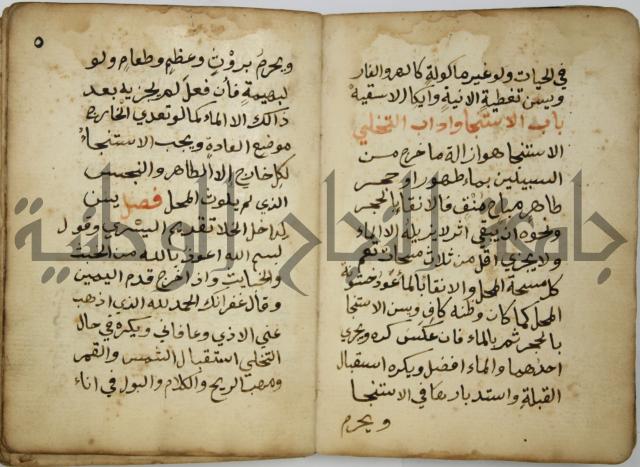 في الحيات ولو غير ماكولة كالهر والفار
ويسن تغطية الانية وايكا الاسقية
باب الاستنجا واداب التخلي
الاستنجا هو ازالة ما خرج من
السبيلين بماء طهور او حجر
طاهر مباح منق فالانقا بالحجر
ونحوه ان يبقي اثر لا يزيله الا الماء
ولا يجزي اقل من ثلاث مسحات تعم
كل مسحة المحل والانقا بالماء عود خشونة
المحل كما كان وظنه كاف ويسن الاستنجا
بالحجر ثم بالماء فان عكس كره ويجزي
احدهما والماء افضل ويكره استقبال
القبلة واستدبارها في الاستنجا
ويحرم
٥
ويحرم بروث وعظم وطعام ولو
لبهيمة فان فعل لم يجزيه بعد
ذالك الا الماء كما لو تعدي الخارج
موضع العادة ويجب الاستنجاء
لكل خارج الا الطاهر والنجس
الذي لم يلوث المحل فصل يسن
لداخل الخلا تقديم اليسري وقول
بسم الله اعوذ بالله من الخبث
والخبايث واذا خرج قدم اليمين
وقال غفرانك الحمد لله الذي اذهب
عني الاذي وعافاني ويكره في حال
التخلي استقبال الشمس والقمر
ومهب الريح والكلام والبول في اناء
جامعة النجاح الوطنية